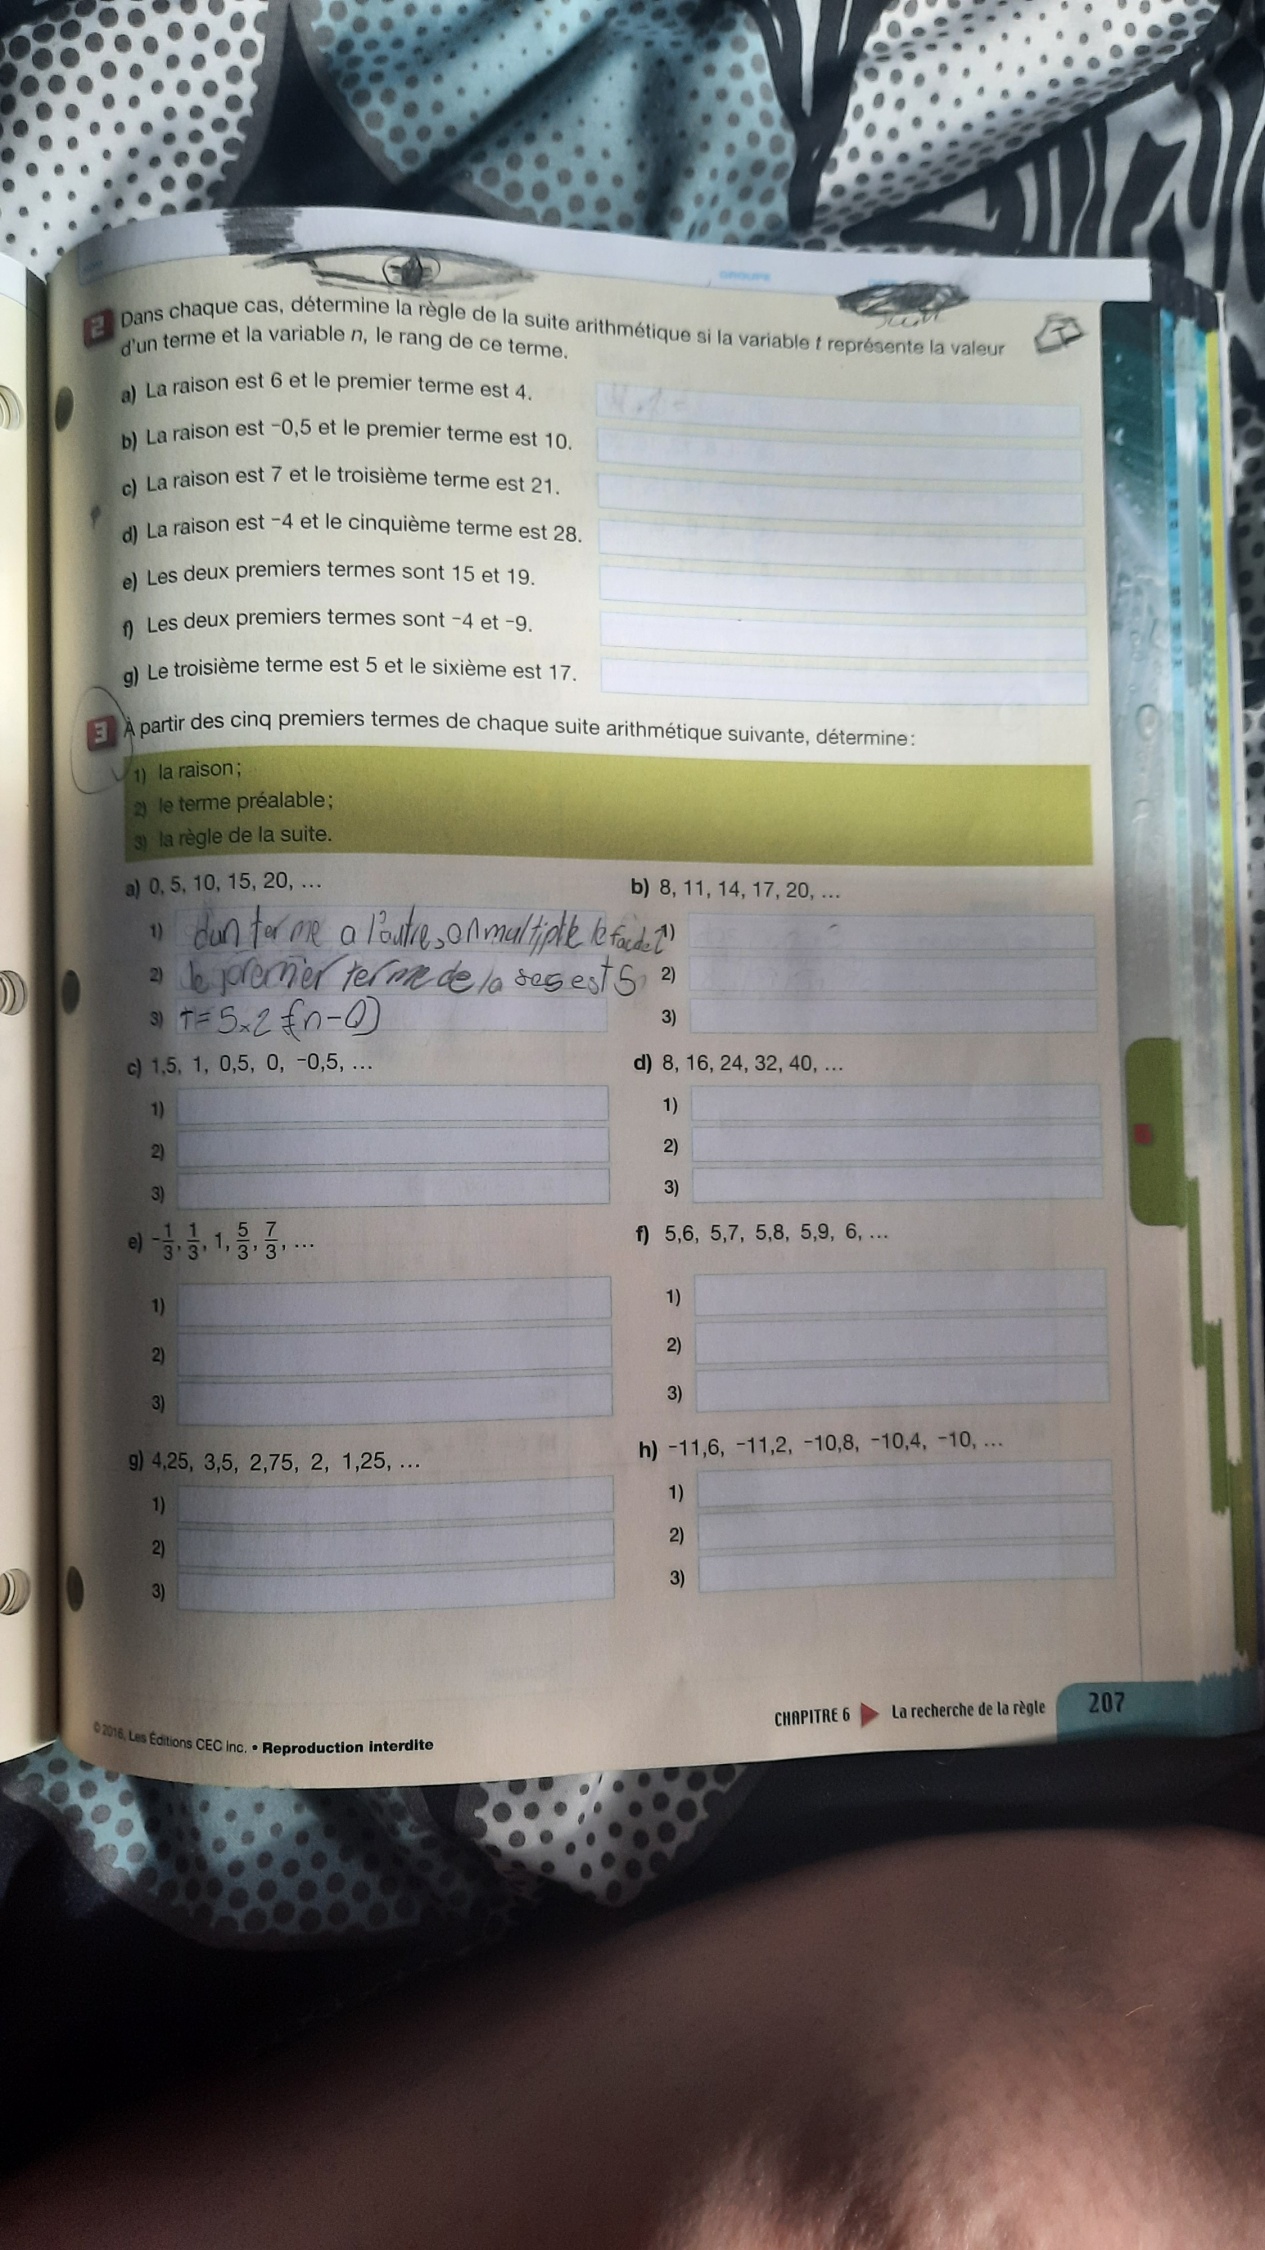 GROUPE
2 Dans chaque cas, détermine la règle de la suite arithmétique si la variable t représente la valeur
d'un terme et la variable n, le rang de ce terme.
a) La raison est 6 et le premier terme est 4.
b) La raison est −0,5 et le premier terme est 10.
c) La raison est 7 et le troisième terme est 21.
d) La raison est −4 et le cinquième terme est 28.
e) Les deux premiers termes sont 15 et 19.
f) Les deux premiers termes sont −4 et −9.
g) Le troisième terme est 5 et le sixième est 17.
3 À partir des cinq premiers termes de chaque suite arithmétique suivante, détermine :
1) la raison;
2) le terme préalable;
3) la règle de la suite.
a) 0, 5, 10, 15, 20, …
1) dun terme a l'autre, on multiplie le
2) le premier terme de la est 5
3) T = 5 × 2 (n - 0)
b) 8, 11, 14, 17, 20, …
1)
2)
3)
c) 1,5, 1, 0,5, 0, −0,5, …
1)
2)
3)
d) 8, 16, 24, 32, 40, …
1)
2)
3)
e) −1/3, 1/3, 1, 5/3, 7/3, …
1)
2)
3)
f) 5,6, 5,7, 5,8, 5,9, 6, …
1)
2)
3)
g) 4,25, 3,5, 2,75, 2, 1,25, …
1)
2)
3)
h) −11,6, −11,2, −10,8, −10,4, −10, …
1)
2)
3)
© 2016, Les Éditions CEC inc. • Reproduction interdite
CHAPITRE 6 La recherche de la règle 207